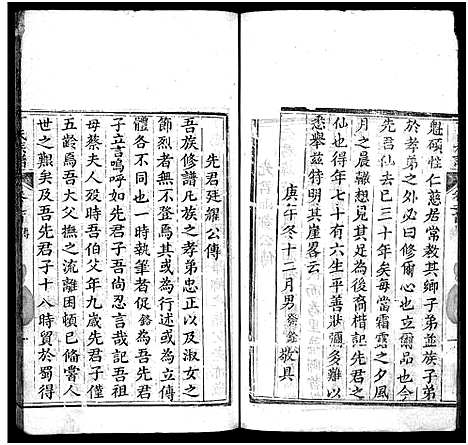 魁碩性仁慈居常教其鄉子弟並族子弟
於孝弟之外必曰修爾心也立爾品也今
先君仙去已三十年矣每當霜露之夕風
月之晨輒想見其為後裔楷記先君之
仙也得年七十有六生平善狀彌多難以
悉舉茲特明其崖畧云
庚午冬十二月男 敬具
先君廷耀公傳
吾族修譜凡族之孝弟忠正以及淑女之
節烈者並不登為其或為行述或立傳
體各不同也一時執筆者促餘為吾先君
子立言嗚呼如先君子吾尚忍言哉吾
母蔡夫人歿時吾伯父年九歲先君子
五齡為吾大父撫之流離困頓已備嘗人
世之艱矣及吾先君子十八時貿於蜀得